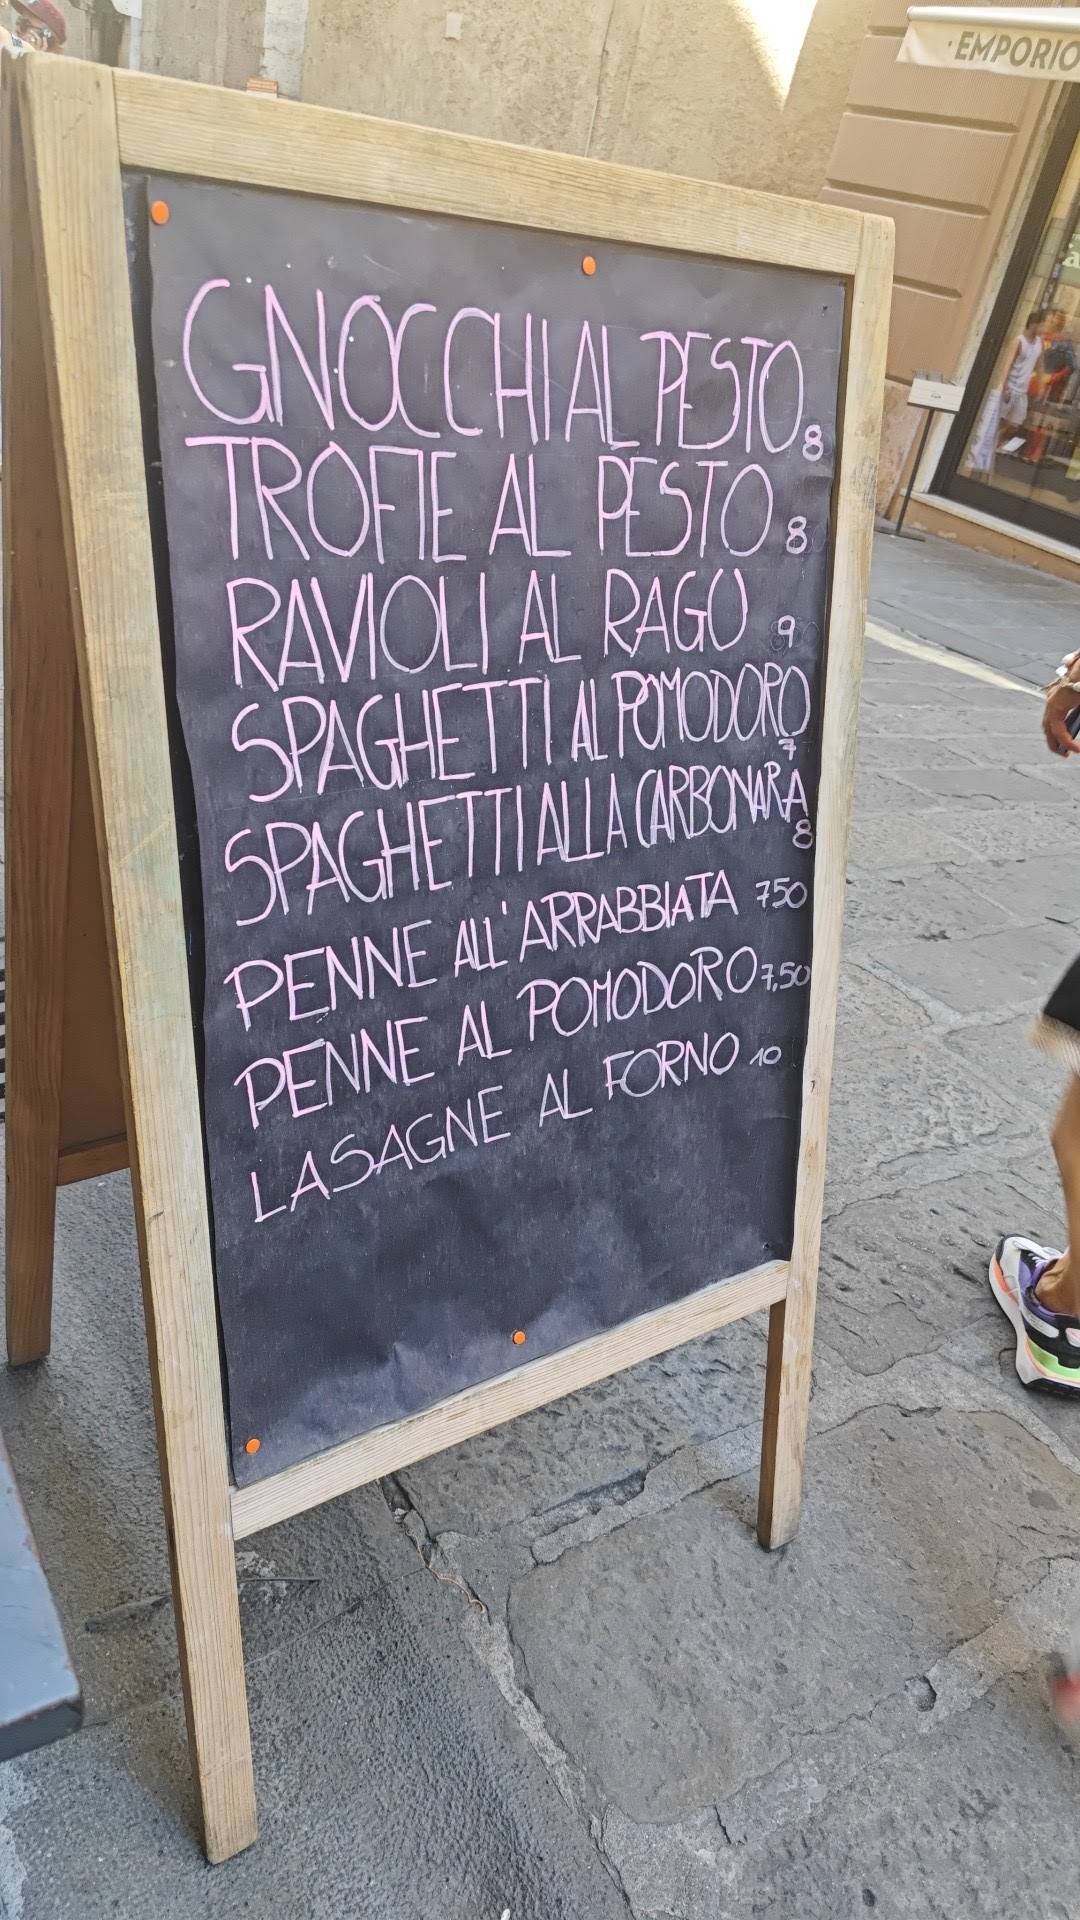 EMPORIO
GNOCCHI AL PESTO 8
TROFIE AL PESTO 8
RAVIOLI AL RAGU 9
SPAGHETTI AL POMODORO
7
SPAGHETTI ALLA CARBONARA
8
PENNE ALL'ARRABBIATA 750
PENNE AL POMODORO 7,50
LASAGNE AL FORNO 10